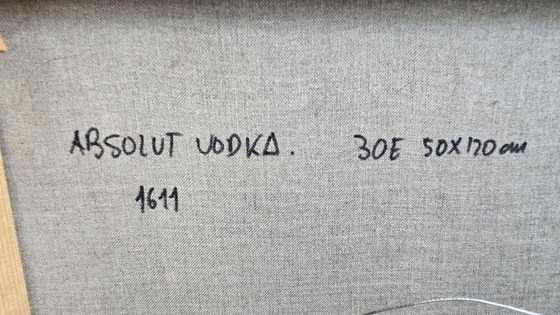 ABSOLUT VODKA. 30E 50X120 cm
1611